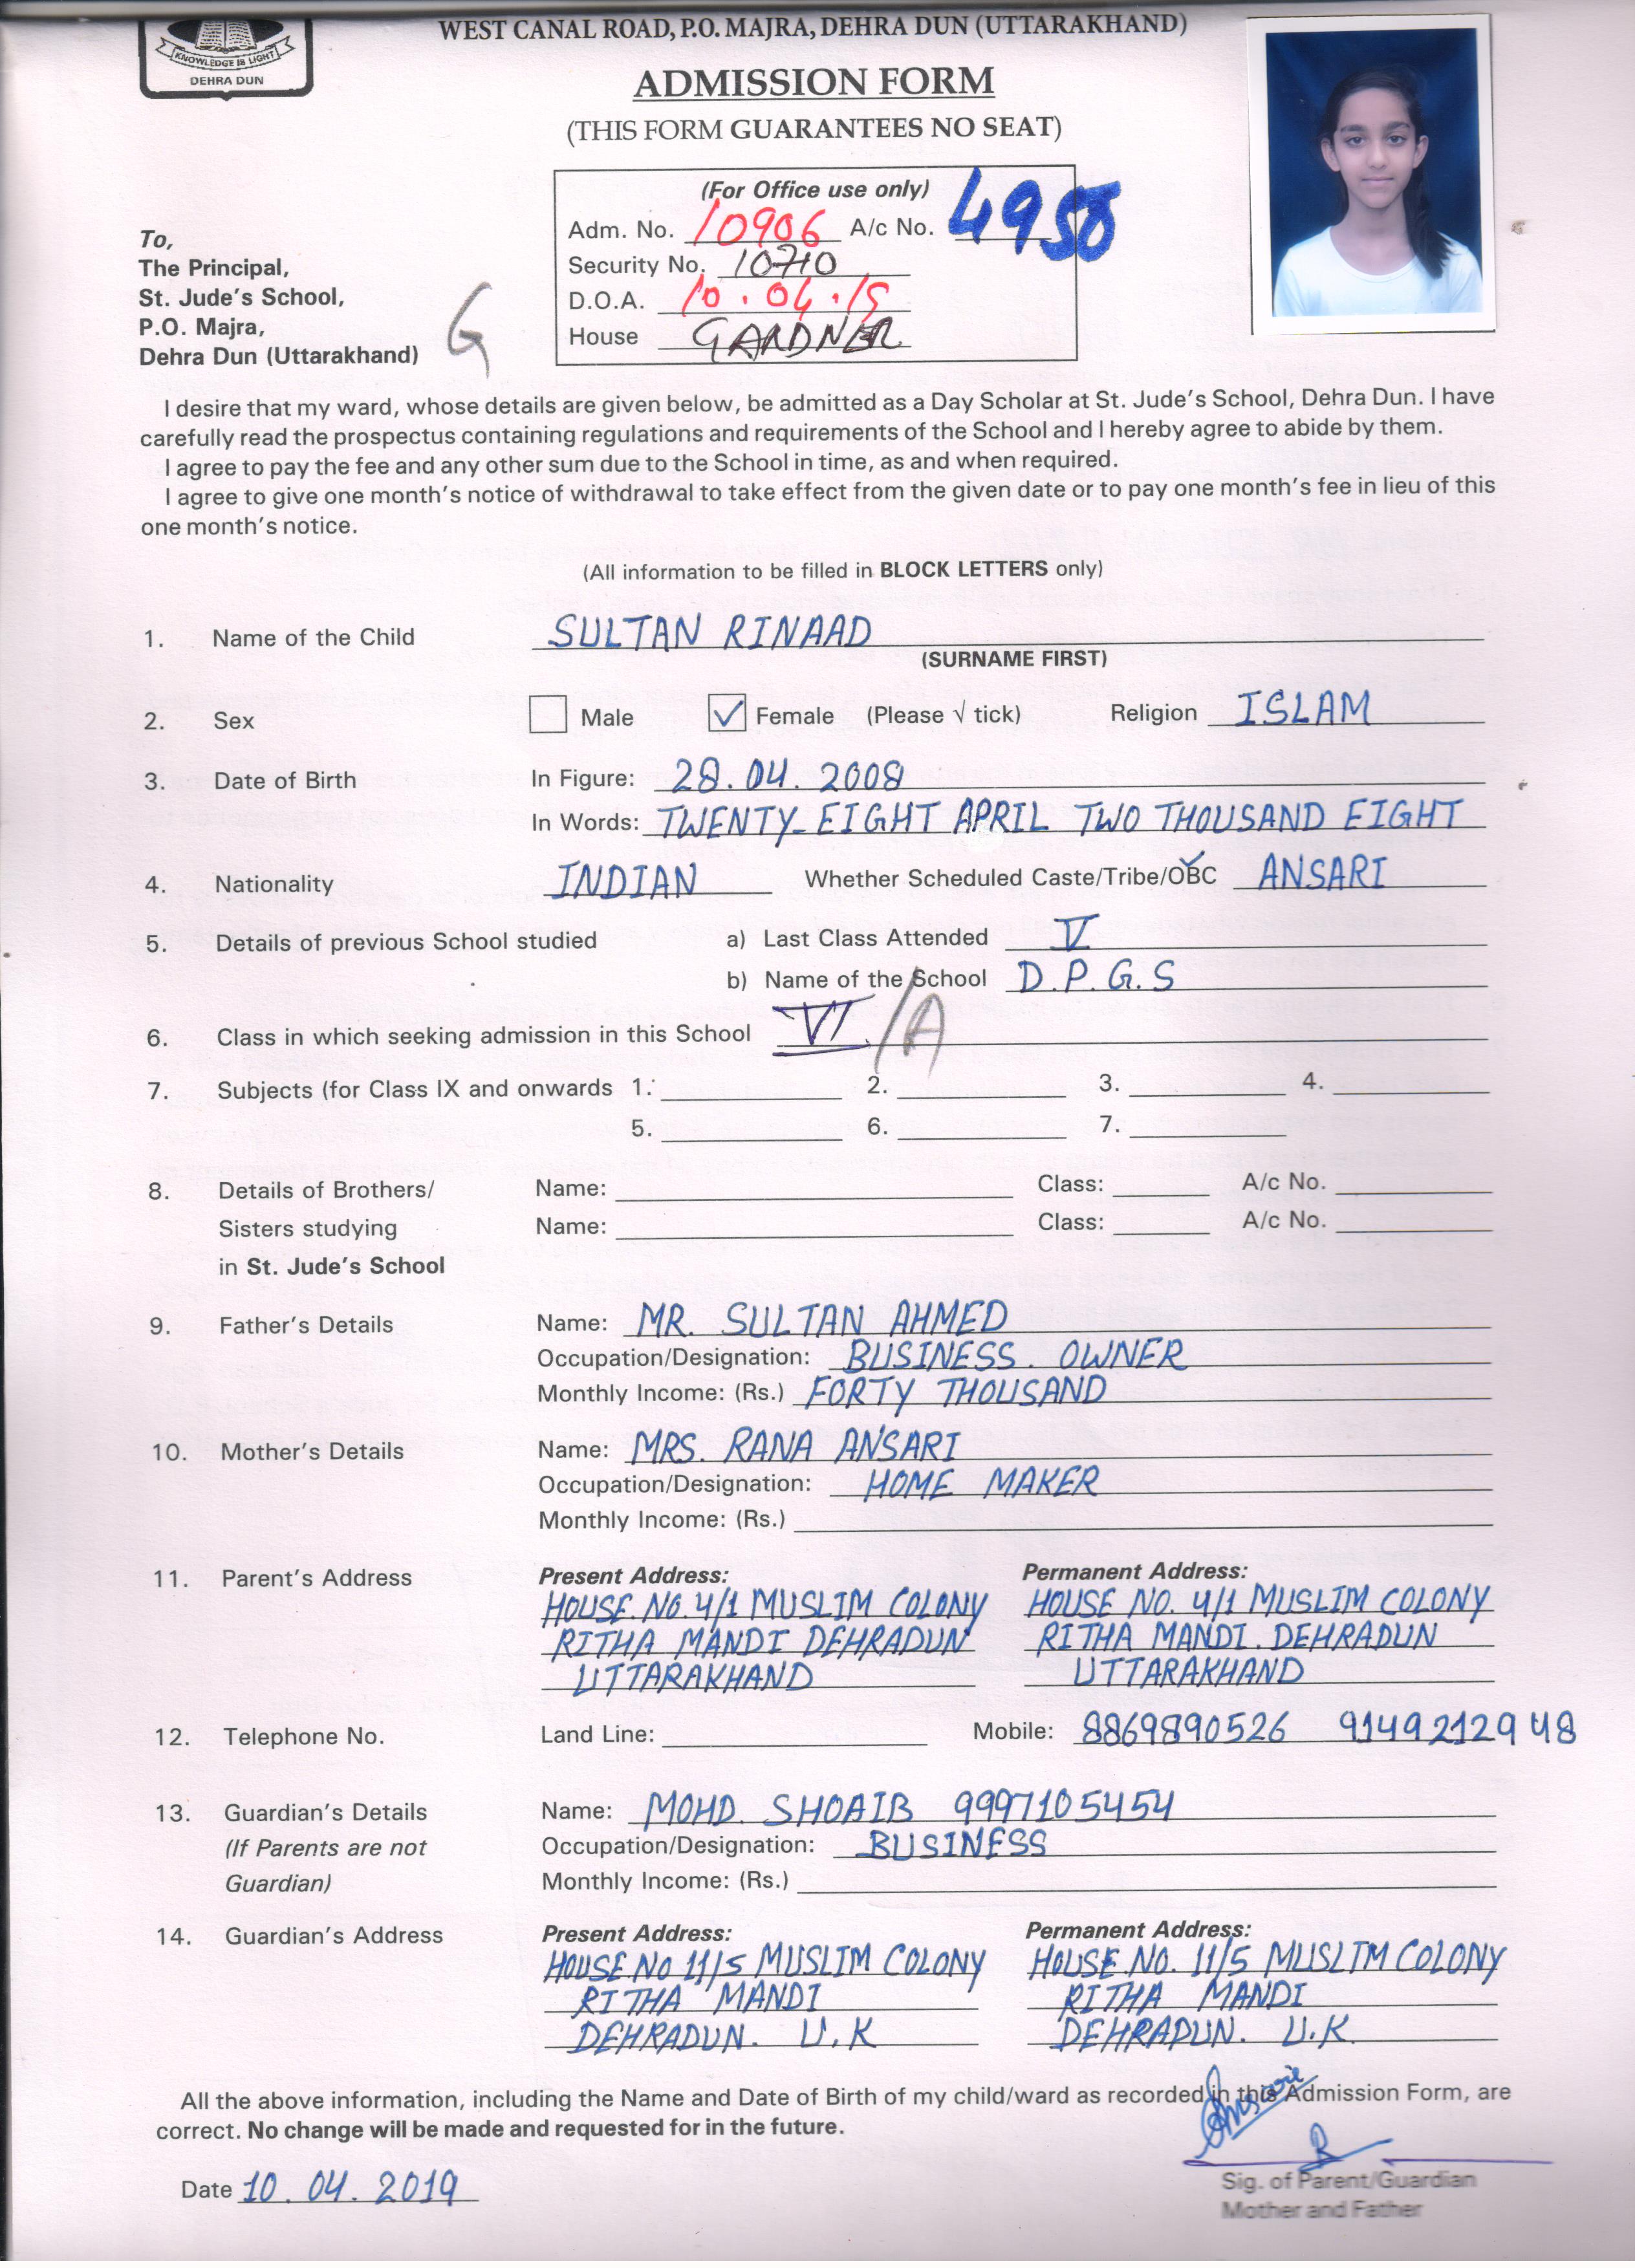 WEST CANAL ROAD, P.O. MAJRA, DEHRA DUN (UTTARAKHAND)
KNOWLEDGE IS LIGHT
DEHRA DUN
ADMISSION FORM
(THIS FORM GUARANTEES NO SEAT)
(For Office use only)
Adm. No. 10906 A/c No. 4958
Security No. 10710
D.O.A. 10.04.19
House GARDNER
To,
The Principal,
St. Jude's School,
P.O. Majra,
Dehra Dun (Uttarakhand)
G
I desire that my ward, whose details are given below, be admitted as a Day Scholar at St. Jude's School, Dehra Dun. I have
carefully read the prospectus containing regulations and requirements of the School and I hereby agree to abide by them.
I agree to pay the fee and any other sum due to the School in time, as and when required.
I agree to give one month's notice of withdrawal to take effect from the given date or to pay one month's fee in lieu of this
one month's notice.
(All information to be filled in BLOCK LETTERS only)
1. Name of the Child SULTAN RINAAD
(SURNAME FIRST)
2. Sex Male ✓ Female (Please √ tick) Religion ISLAM
3. Date of Birth In Figure: 28.04.2008
In Words: TWENTY-EIGHT APRIL TWO THOUSAND EIGHT
4. Nationality INDIAN Whether Scheduled Caste/Tribe/OBC ANSARI
5. Details of previous School studied a) Last Class Attended V
b) Name of the School D.P.G.S
6. Class in which seeking admission in this School VI /A
7. Subjects (for Class IX and onwards 1. 2. 3. 4.
5. 6. 7.
8. Details of Brothers/ Name: Class: A/c No.
Sisters studying Name: Class: A/c No.
in St. Jude's School
9. Father's Details Name: MR. SULTAN AHMED
Occupation/Designation: BUSINESS. OWNER
Monthly Income: (Rs.) FORTY THOUSAND
10. Mother's Details Name: MRS. RANA ANSARI
Occupation/Designation: HOME MAKER
Monthly Income: (Rs.)
11. Parent's Address Present Address: Permanent Address:
HOUSE.NO.4/1 MUSLIM COLONY HOUSE NO. 4/1 MUSLIM COLONY
RITHA MANDI DEHRADUN RITHA MANDI. DEHRADUN
UTTARAKHAND UTTARAKHAND
12. Telephone No. Land Line: Mobile: 8869890526 9149212948
13. Guardian's Details Name: MOHD. SHOAIB 9997105454
(If Parents are not Occupation/Designation: BUSINESS
Guardian) Monthly Income: (Rs.)
14. Guardian's Address Present Address: Permanent Address:
HOUSE.NO 11/5 MUSLIM COLONY HOUSE.NO. 11/5 MUSLIM COLONY
RITHA MANDI RITHA MANDI
DEHRADUN. U.K DEHRADUN. U.K.
All the above information, including the Name and Date of Birth of my child/ward as recorded in this Admission Form, are
correct. No change will be made and requested for in the future.
Date 10.04.2019
Sig. of Parent/Guardian
Mother and Father